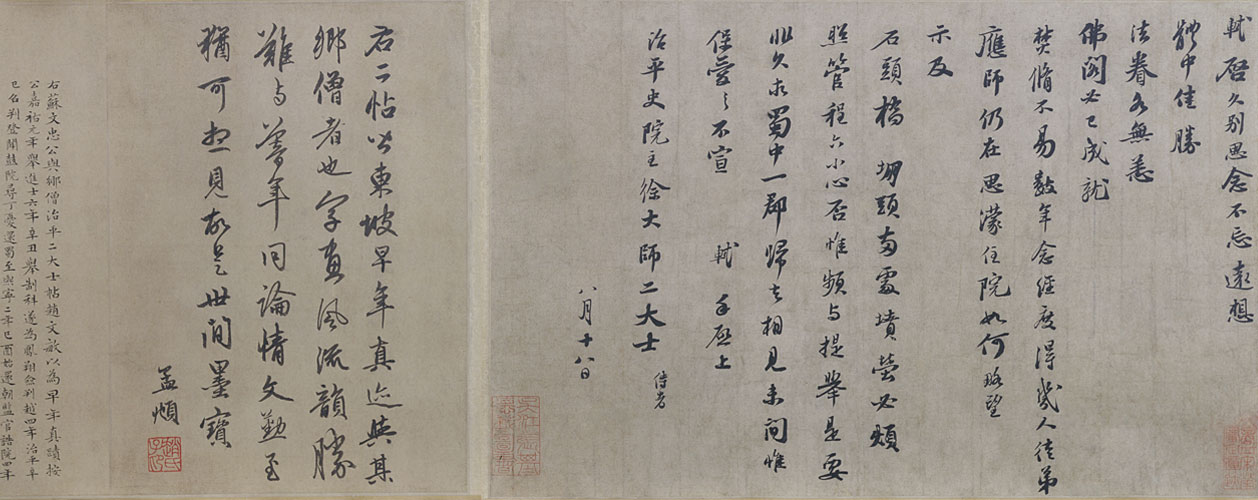 軾啓久別思念不忘遠想
體中佳勝
法眷各無恙
佛閣必已成就
焚脩不易數年念經度得幾人徒弟
應師仍在思濛住院如何略望
示及
石頭橋堋頭兩處墳塋必煩
照管程六小心否惟頻与提舉是要
非久求蜀中一郡歸去相見未間惟
保愛之不宣 軾手啟上
治平史院主徐大師二大士 侍者
八月十八日
右二帖皆東坡早年真迹與其
鄉僧者也字畫風流韻勝
難与暮年同論情文勤至
猶可想見故是世間墨寶
孟頫
趙氏子昂
右蘇文忠公與鄉僧治平二大士帖趙文敏以為早年真蹟按
公嘉祐元年舉進士六年辛丑舉制科遂為鳳翔僉判越四年治平
已名判登聞鼓院尋丁憂還蜀至熙寧二年己酉始還朝監官誥院四年